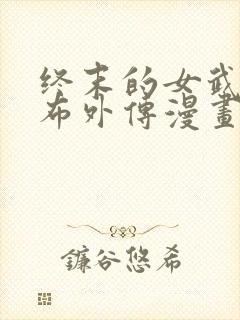 终末的女武
布外傳漫畫
鐮谷悠希